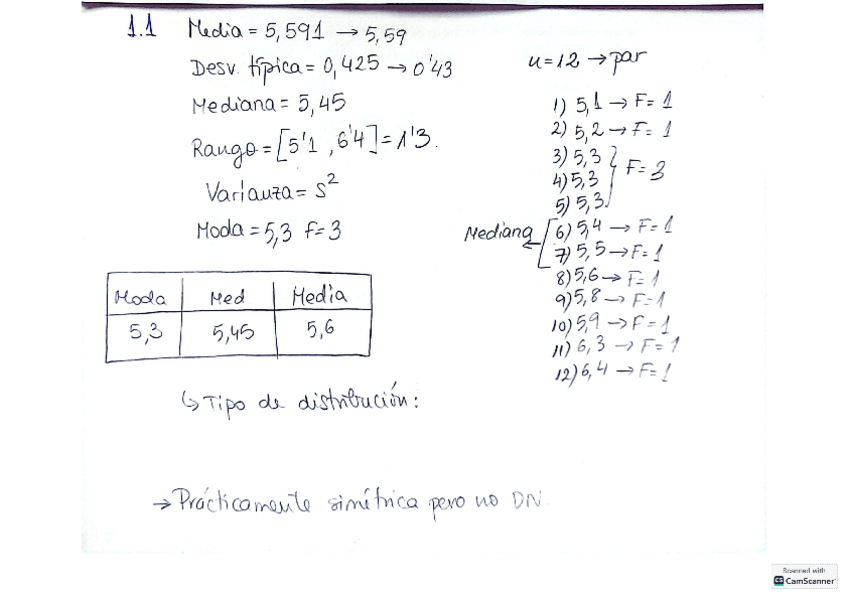 1.1 Media = 5,591 → 5,59
Desv. típica = 0,425 → 0'43
Mediana = 5,45
Rango = [5'1 , 6'4] = 1'3.
Varianza = S²
Moda = 5,3 f=3
n=12 → par
1) 5,1 → F= 1
2) 5,2 → F= 1
3) 5,3
4) 5,3 F= 3
5) 5,3
Mediana 6) 5,4 → F= 1
7) 5,5 → F= 1
8) 5,6 → F= 1
9) 5,8 → F=1
10) 5,9 → F= 1
11) 6,3 → F= 1
12) 6,4 → F= 1
Moda Med Media
5,3 5,45 5,6
↳ Tipo de distribución:
→ Prácticamente simétrica pero no DN.
Scanned with
CS CamScanner